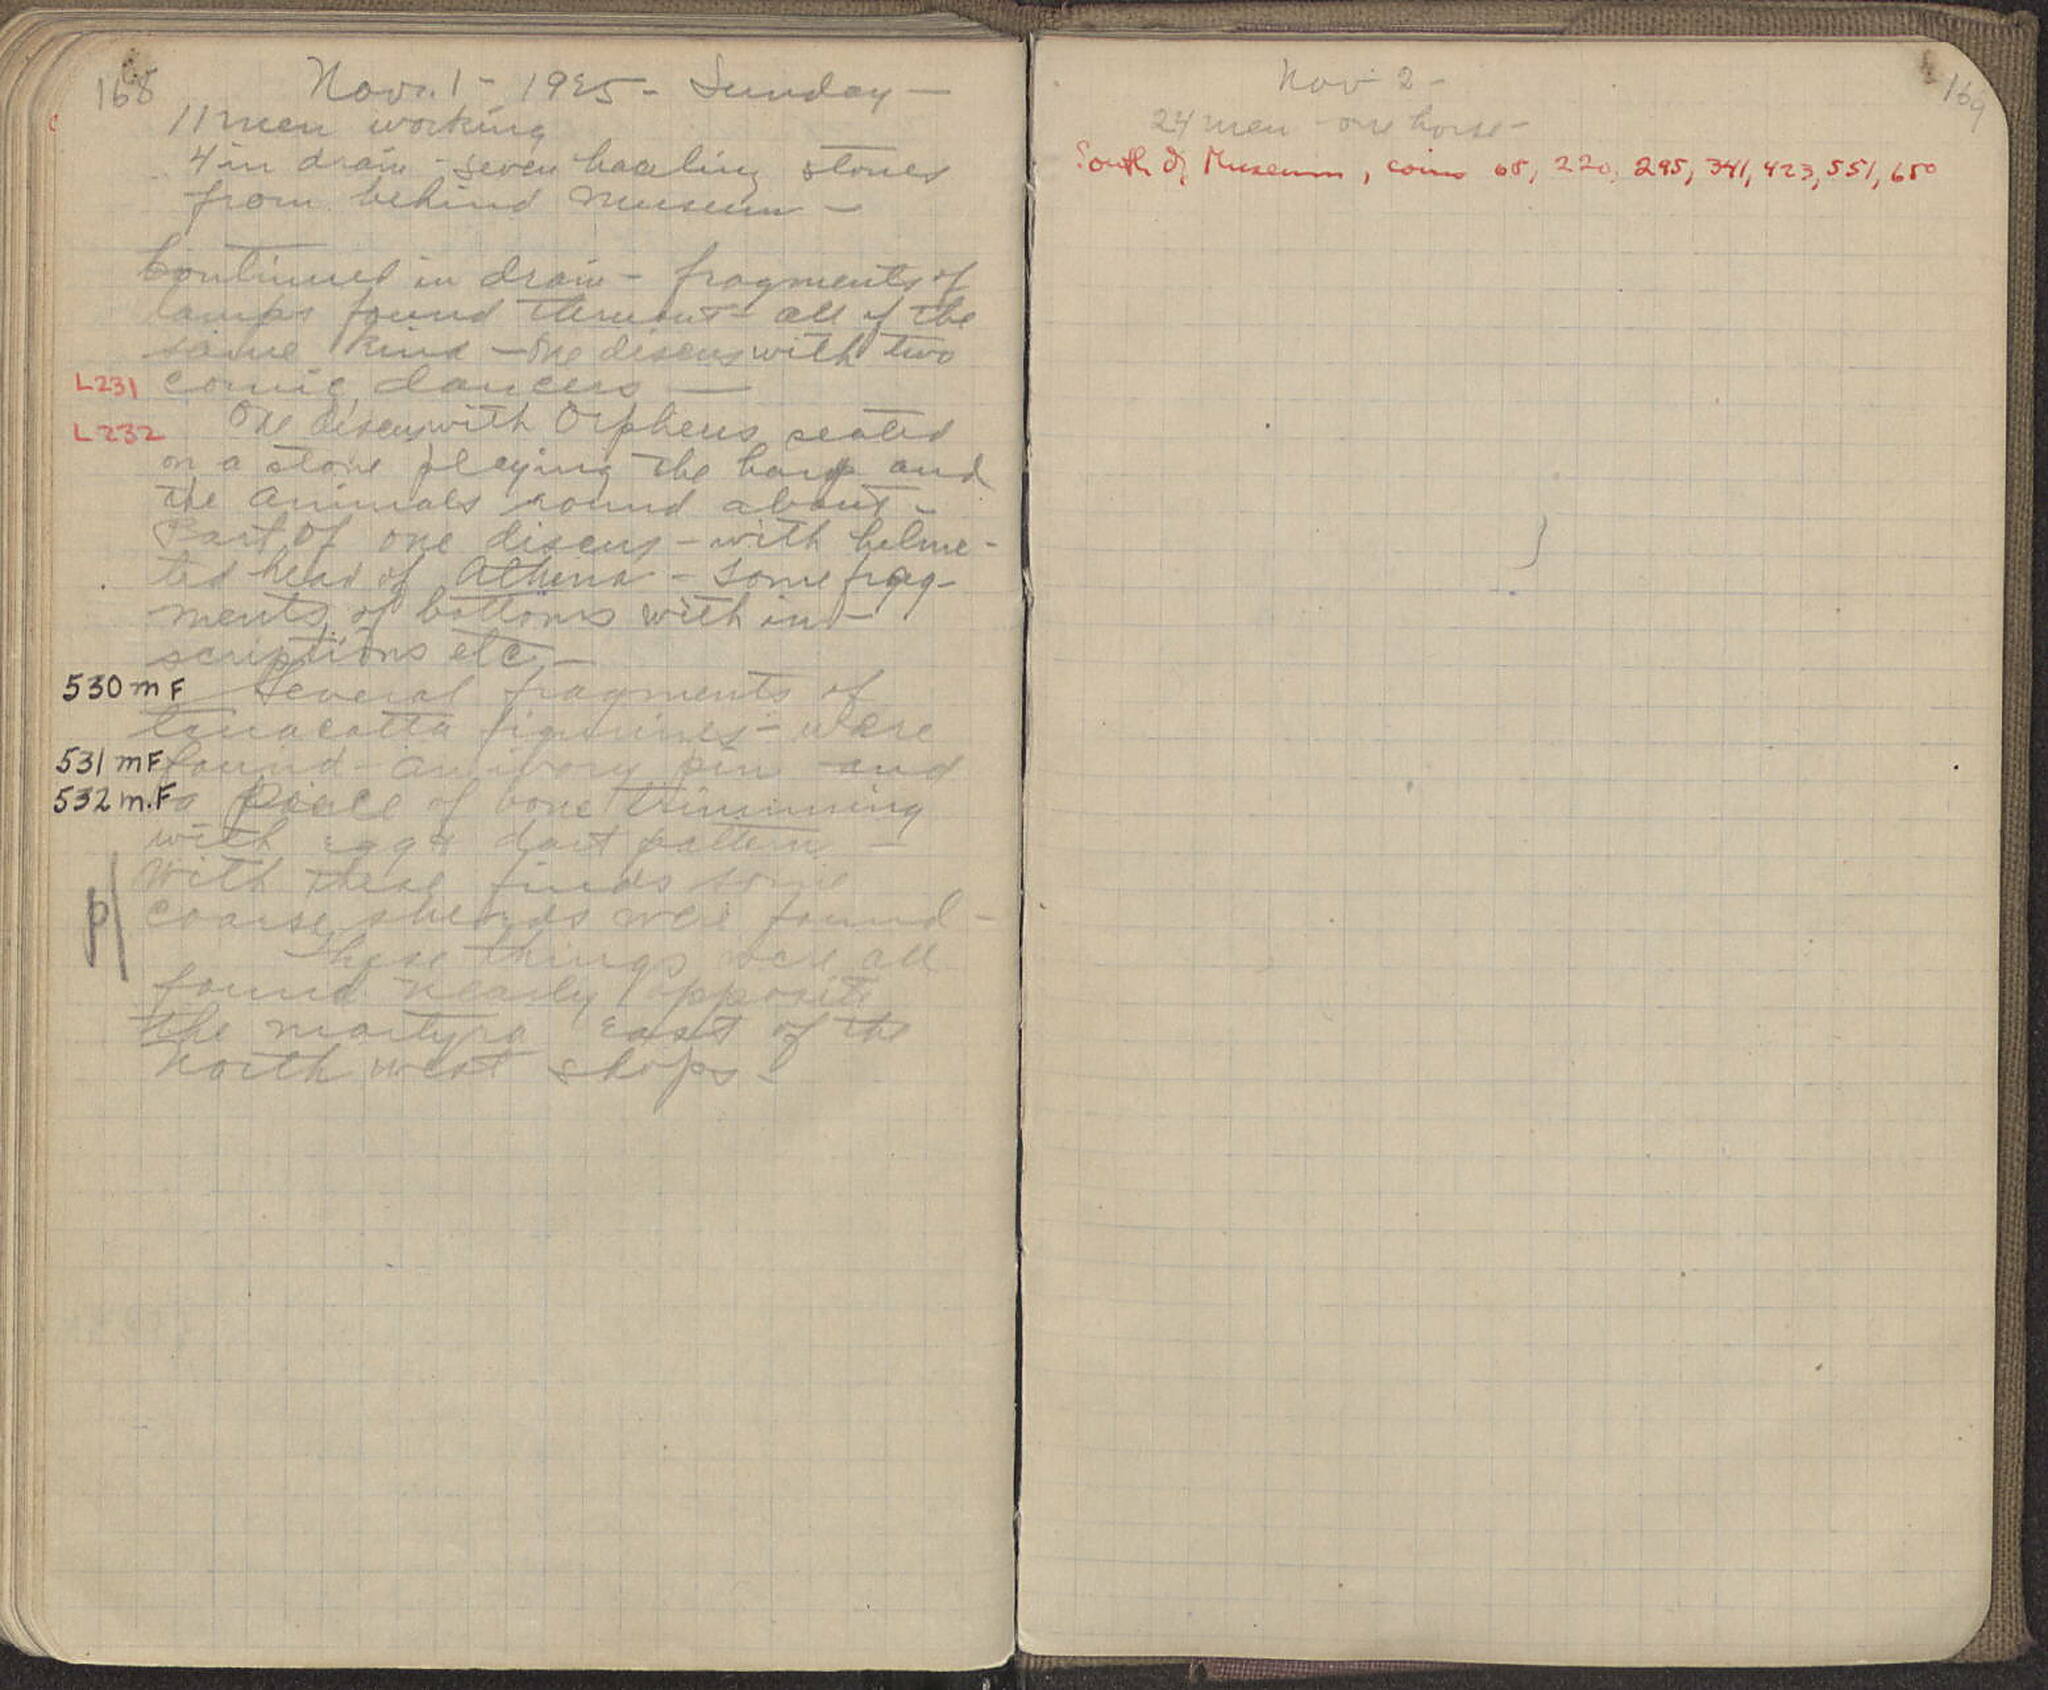 168
Nov. 1 - 1925 - Sunday -
11 men working
4 in drain - seven hauling stones
from behind museum -
Continued in drain - fragments of
lamps found - all of the
same kind - one discus with two
L231 comic dancers -
L232 One discus with Orpheus seated
on a stone playing the harp and
the animals round about -
Part of one discus - with helme-
ted head of Athena - some frag-
ments of bottoms with in-
scriptions etc -
530 m F Several fragments of
terracotta figurines - were
531 m F found - an ivory pin and
532 m.F a piece of bone trimming
with egg & dart pattern -
With these finds some
p| coarse sherds were found -
These things were all
found nearly opposite
the martyra east of the
North west shops -
169
Nov 2 -
24 men - one horse -
South of Museum, coins 68, 220, 295, 341, 423, 551, 650